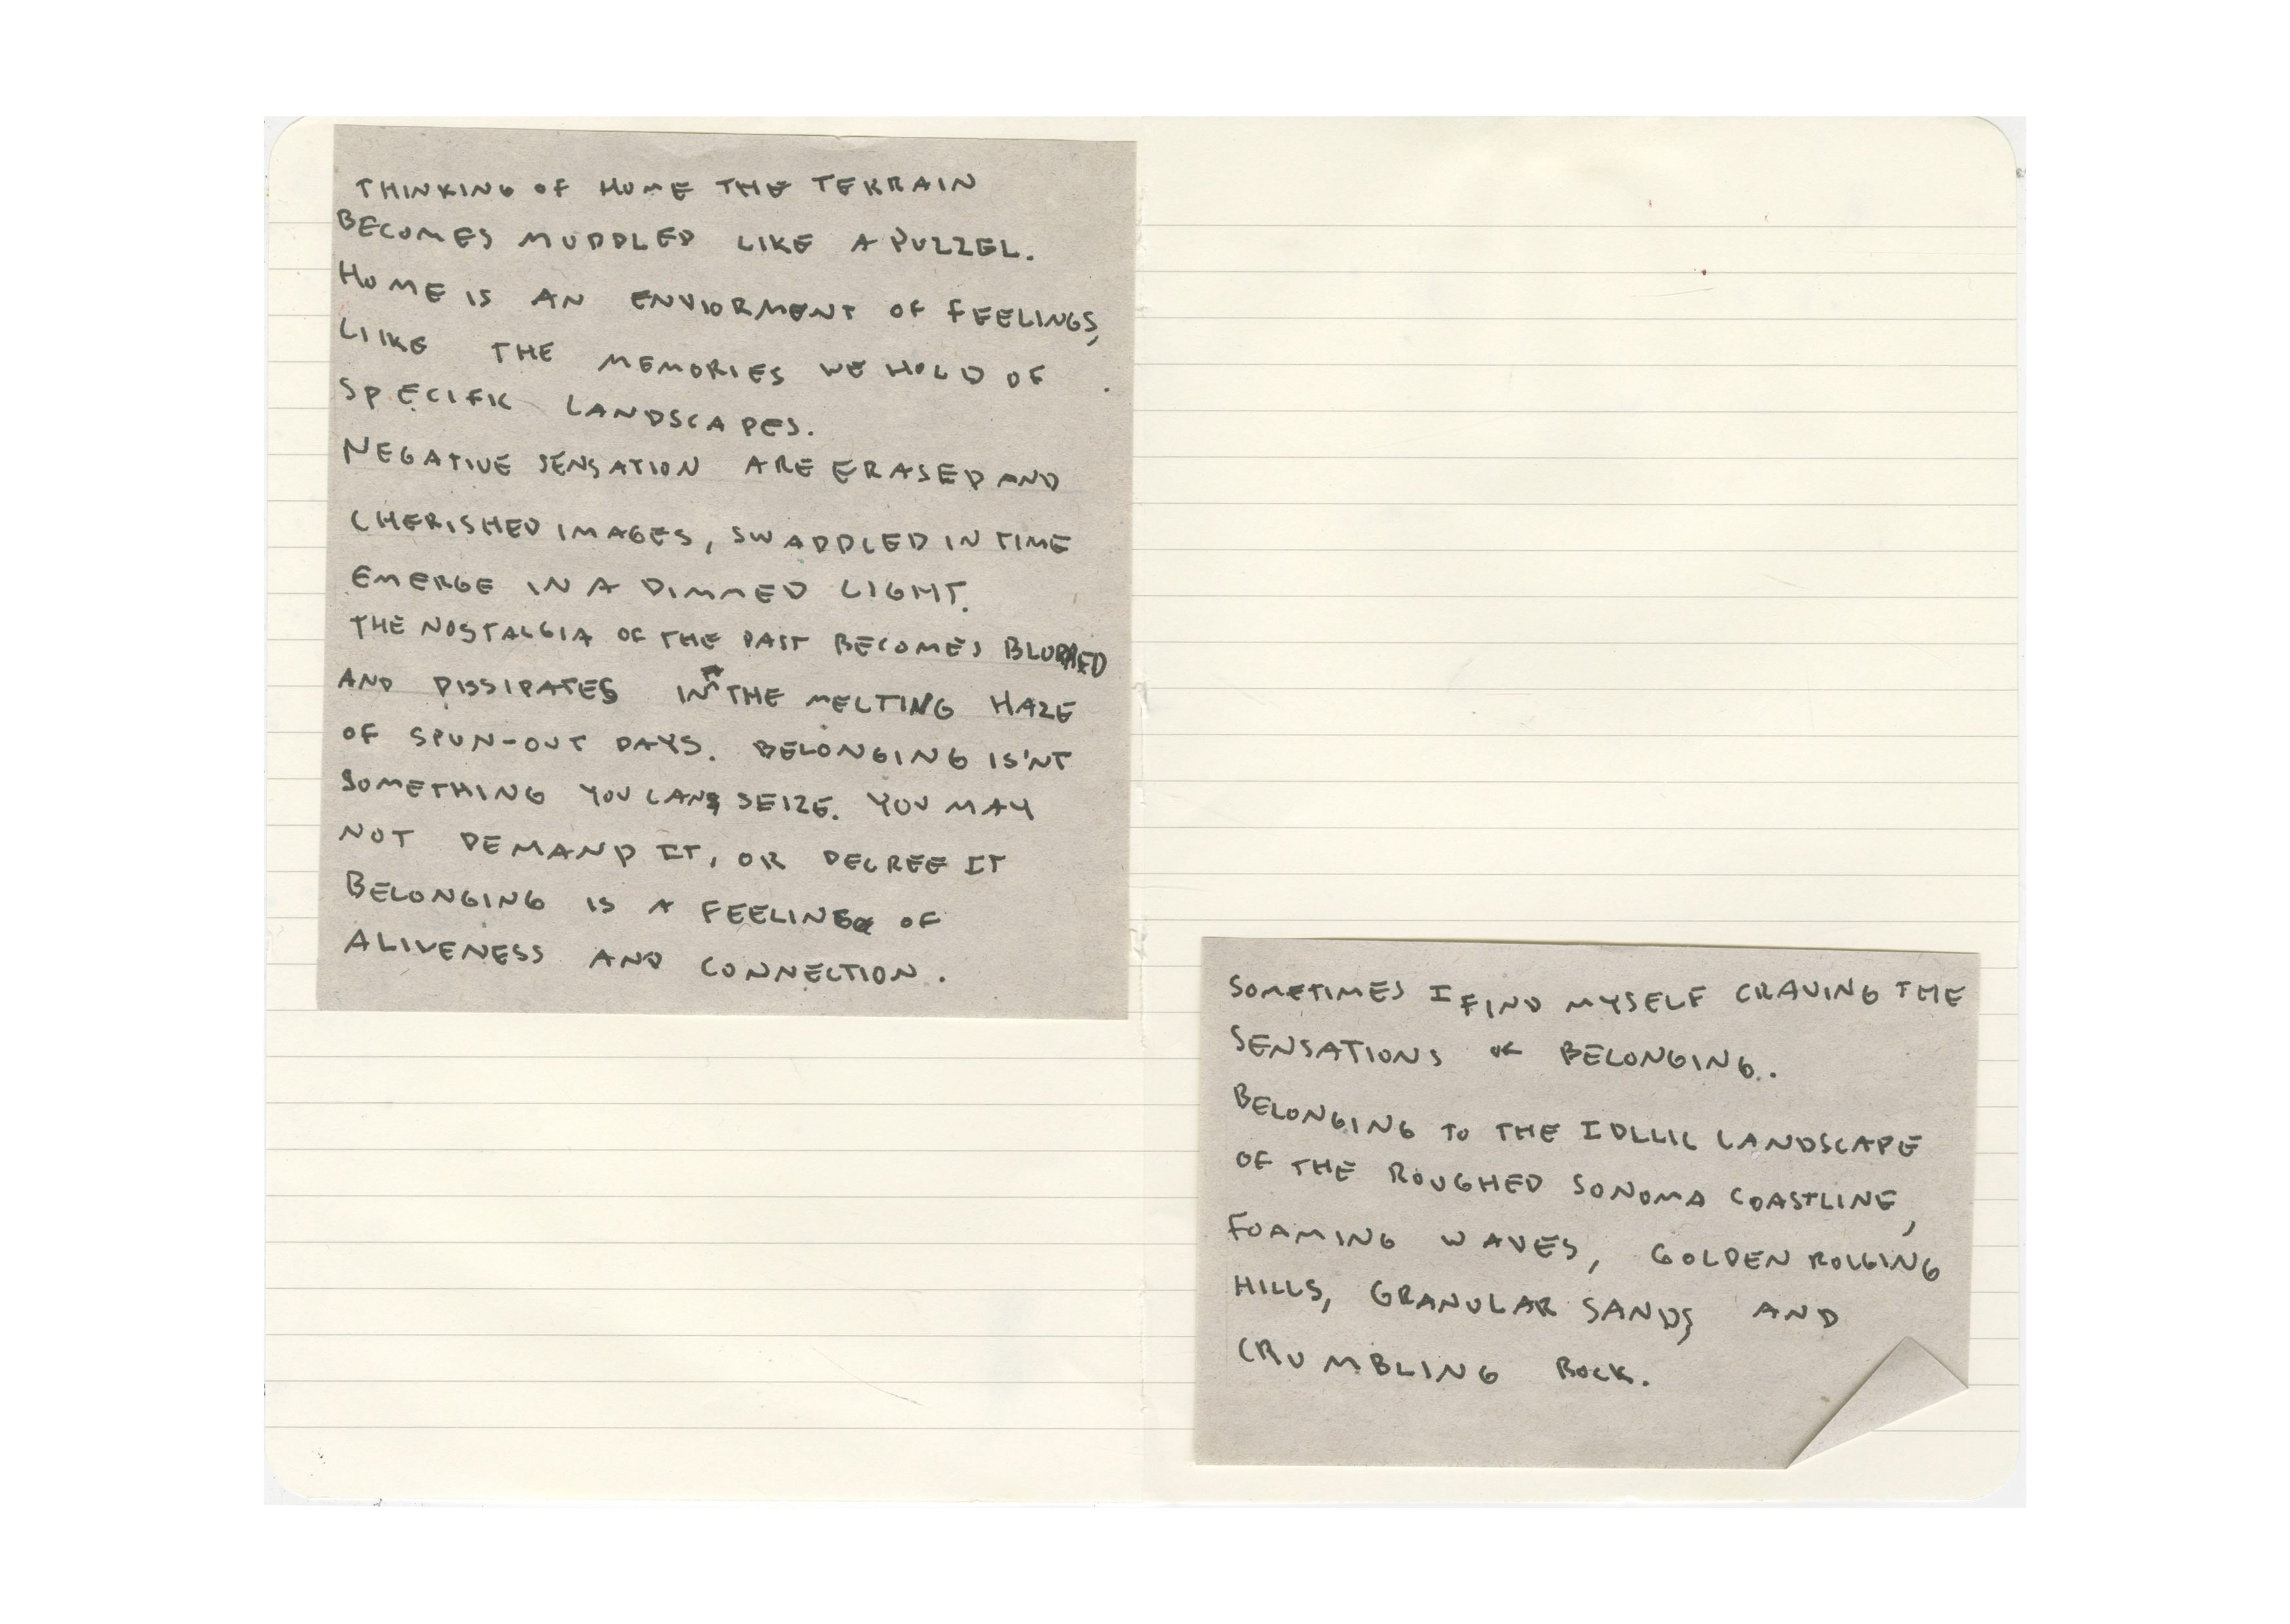 THINKING OF HOME THE TERRAIN
BECOMES MUDDLED LIKE A PUZZEL.
HOME IS AN ENVIORMENT OF FEELINGS,
LIIKE THE MEMORIES WE HOLD OF
SPECIFIC LANDSCAPES.
NEGATIVE SENSATION ARE ERASED AND
CHERISHED IMAGES, SWADDLED IN TIME
EMERGE IN A DIMMED LIGHT.
THE NOSTALGIA OF THE PAST BECOMES BLURRED
AND DISSIPATES IN THE MELTING HAZE
OF SPUN-OUT DAYS. BELONGING IS'NT
SOMETHING YOU CAN SEIZE. YOU MAY
NOT DEMAND IT, OR DECREE IT
BELONGING IS A FEELING OF
ALIVENESS AND CONNECTION.
SOMETIMES I FIND MYSELF CRAVING THE
SENSATIONS OF BELONGING.
BELONGING TO THE IDLLIC LANDSCAPE
OF THE ROUGHED SONOMA COASTLINE,
FOAMING WAVES, GOLDEN ROLLING
HILLS, GRANULAR SANDS, AND
CRUMBLING ROCK.